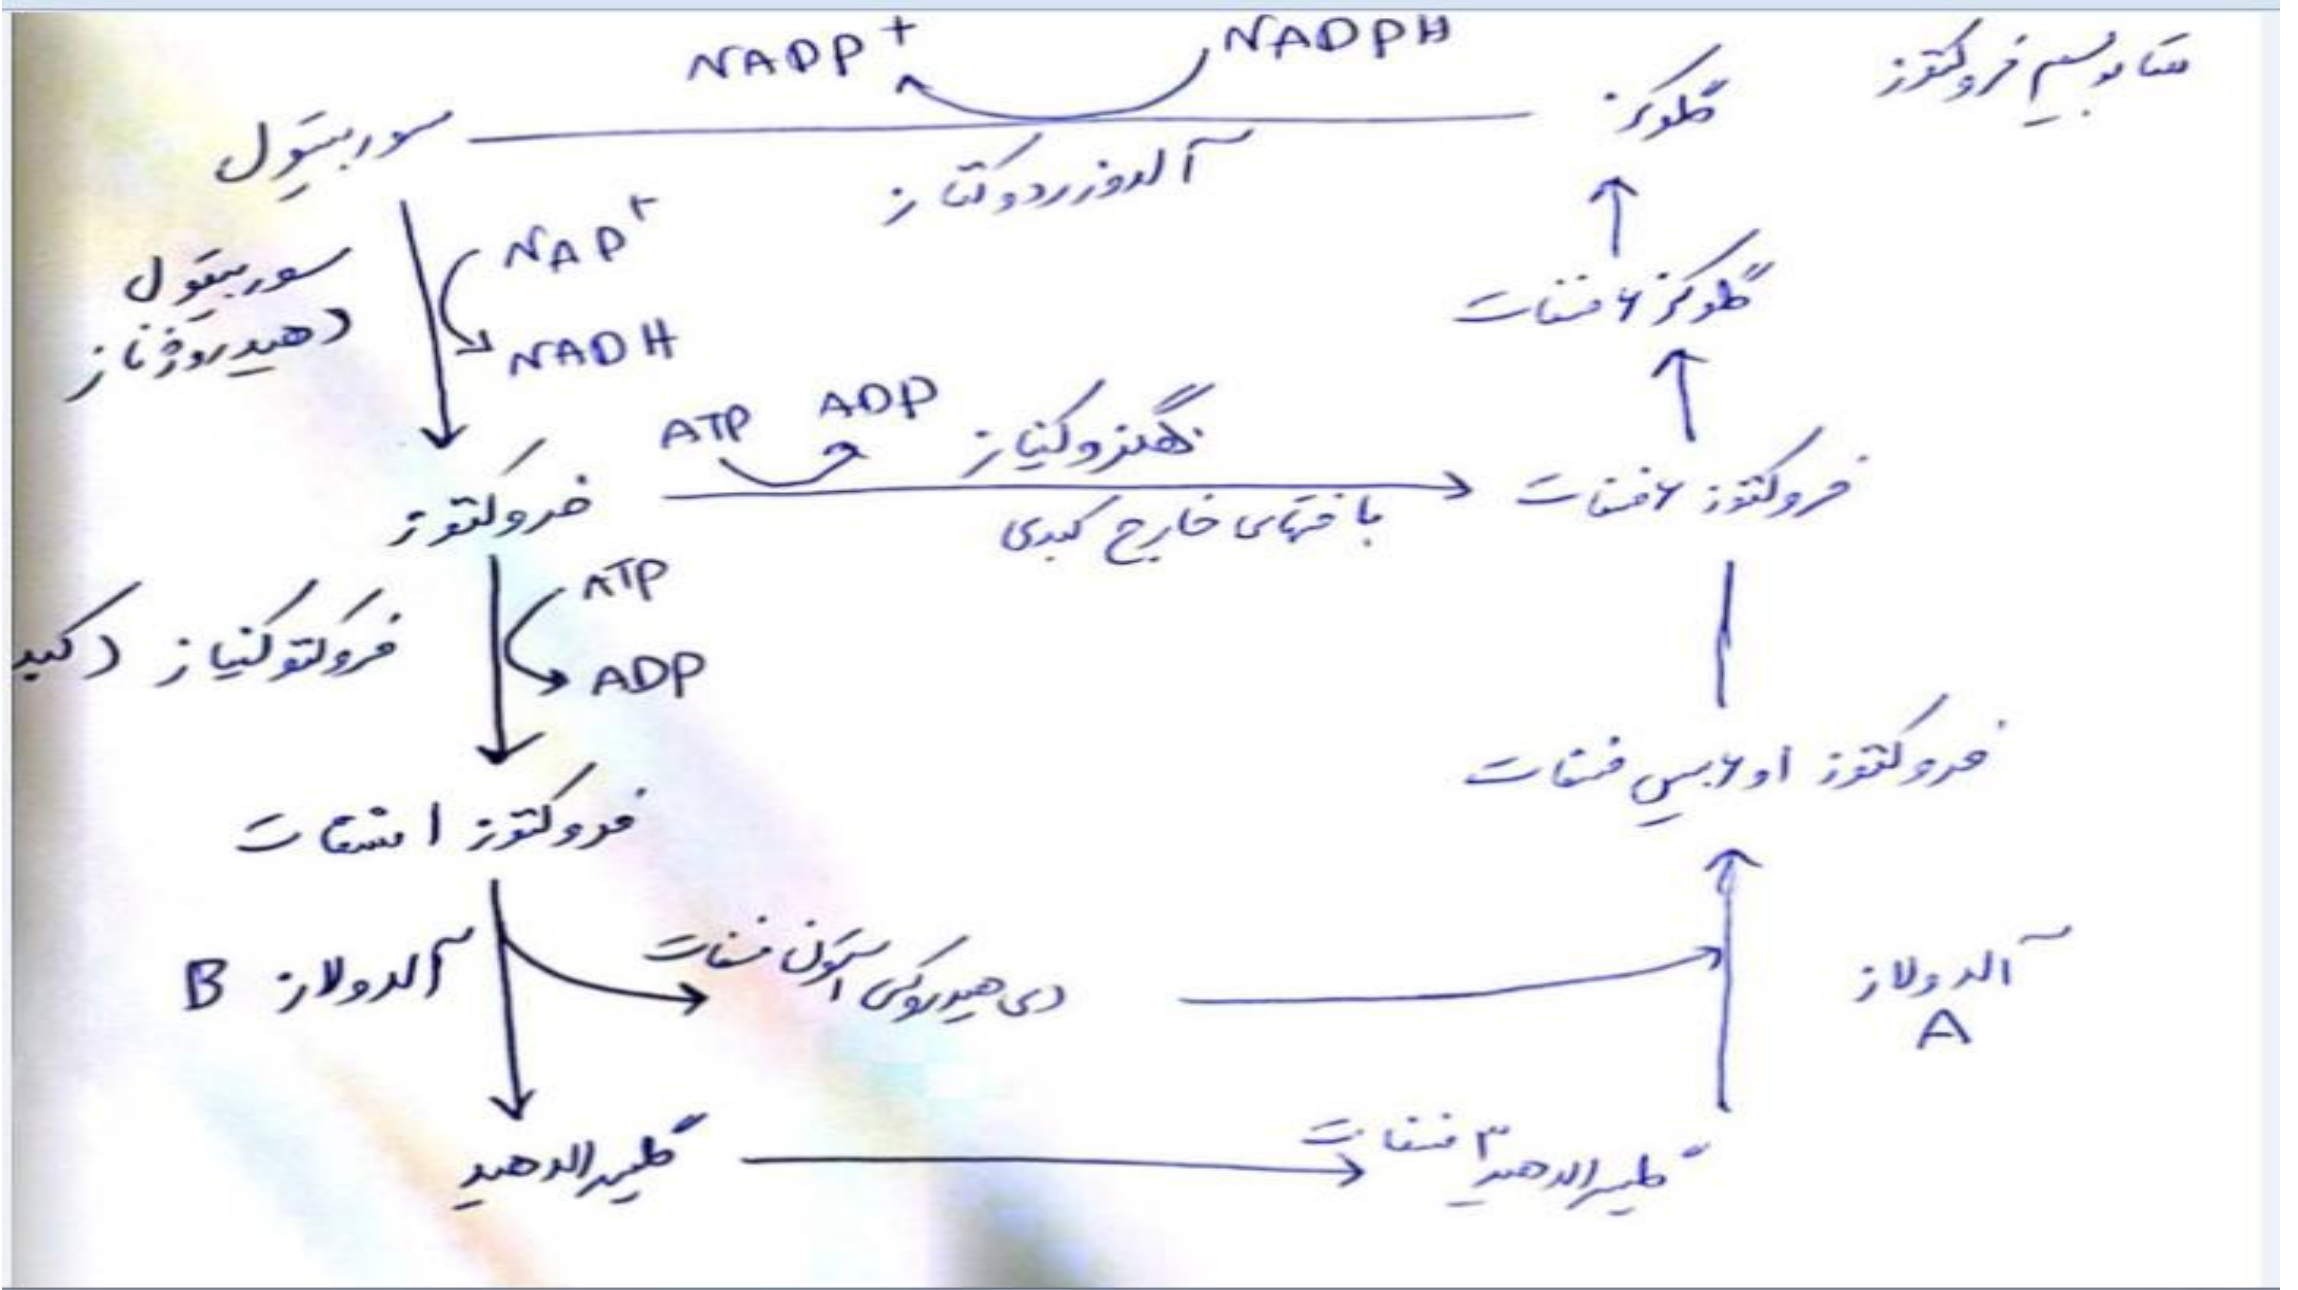 متابولیسم فروکتوز
NADP+ NADPH
گلوکز
سوربیتول
آلدوز ردوکتاز
NAP+
سوربیتول
دهیدروژناز
NADH
گلوکز ۶ فسفات
ATP ADP
هگزوکیناز
فروکتوز
بافتهای خارج کبدی
فروکتوز ۶ فسفات
ATP
فروکتوکیناز (کبد
ADP
فروکتوز ۱ و ۶ بیس فسفات
فروکتوز ۱ فسفات
آلدولاز B
دی هیدروکسی استون فسفات
آلدولاز
A
گلیسرالدهید
گلیسرالدهید ۳ فسفات